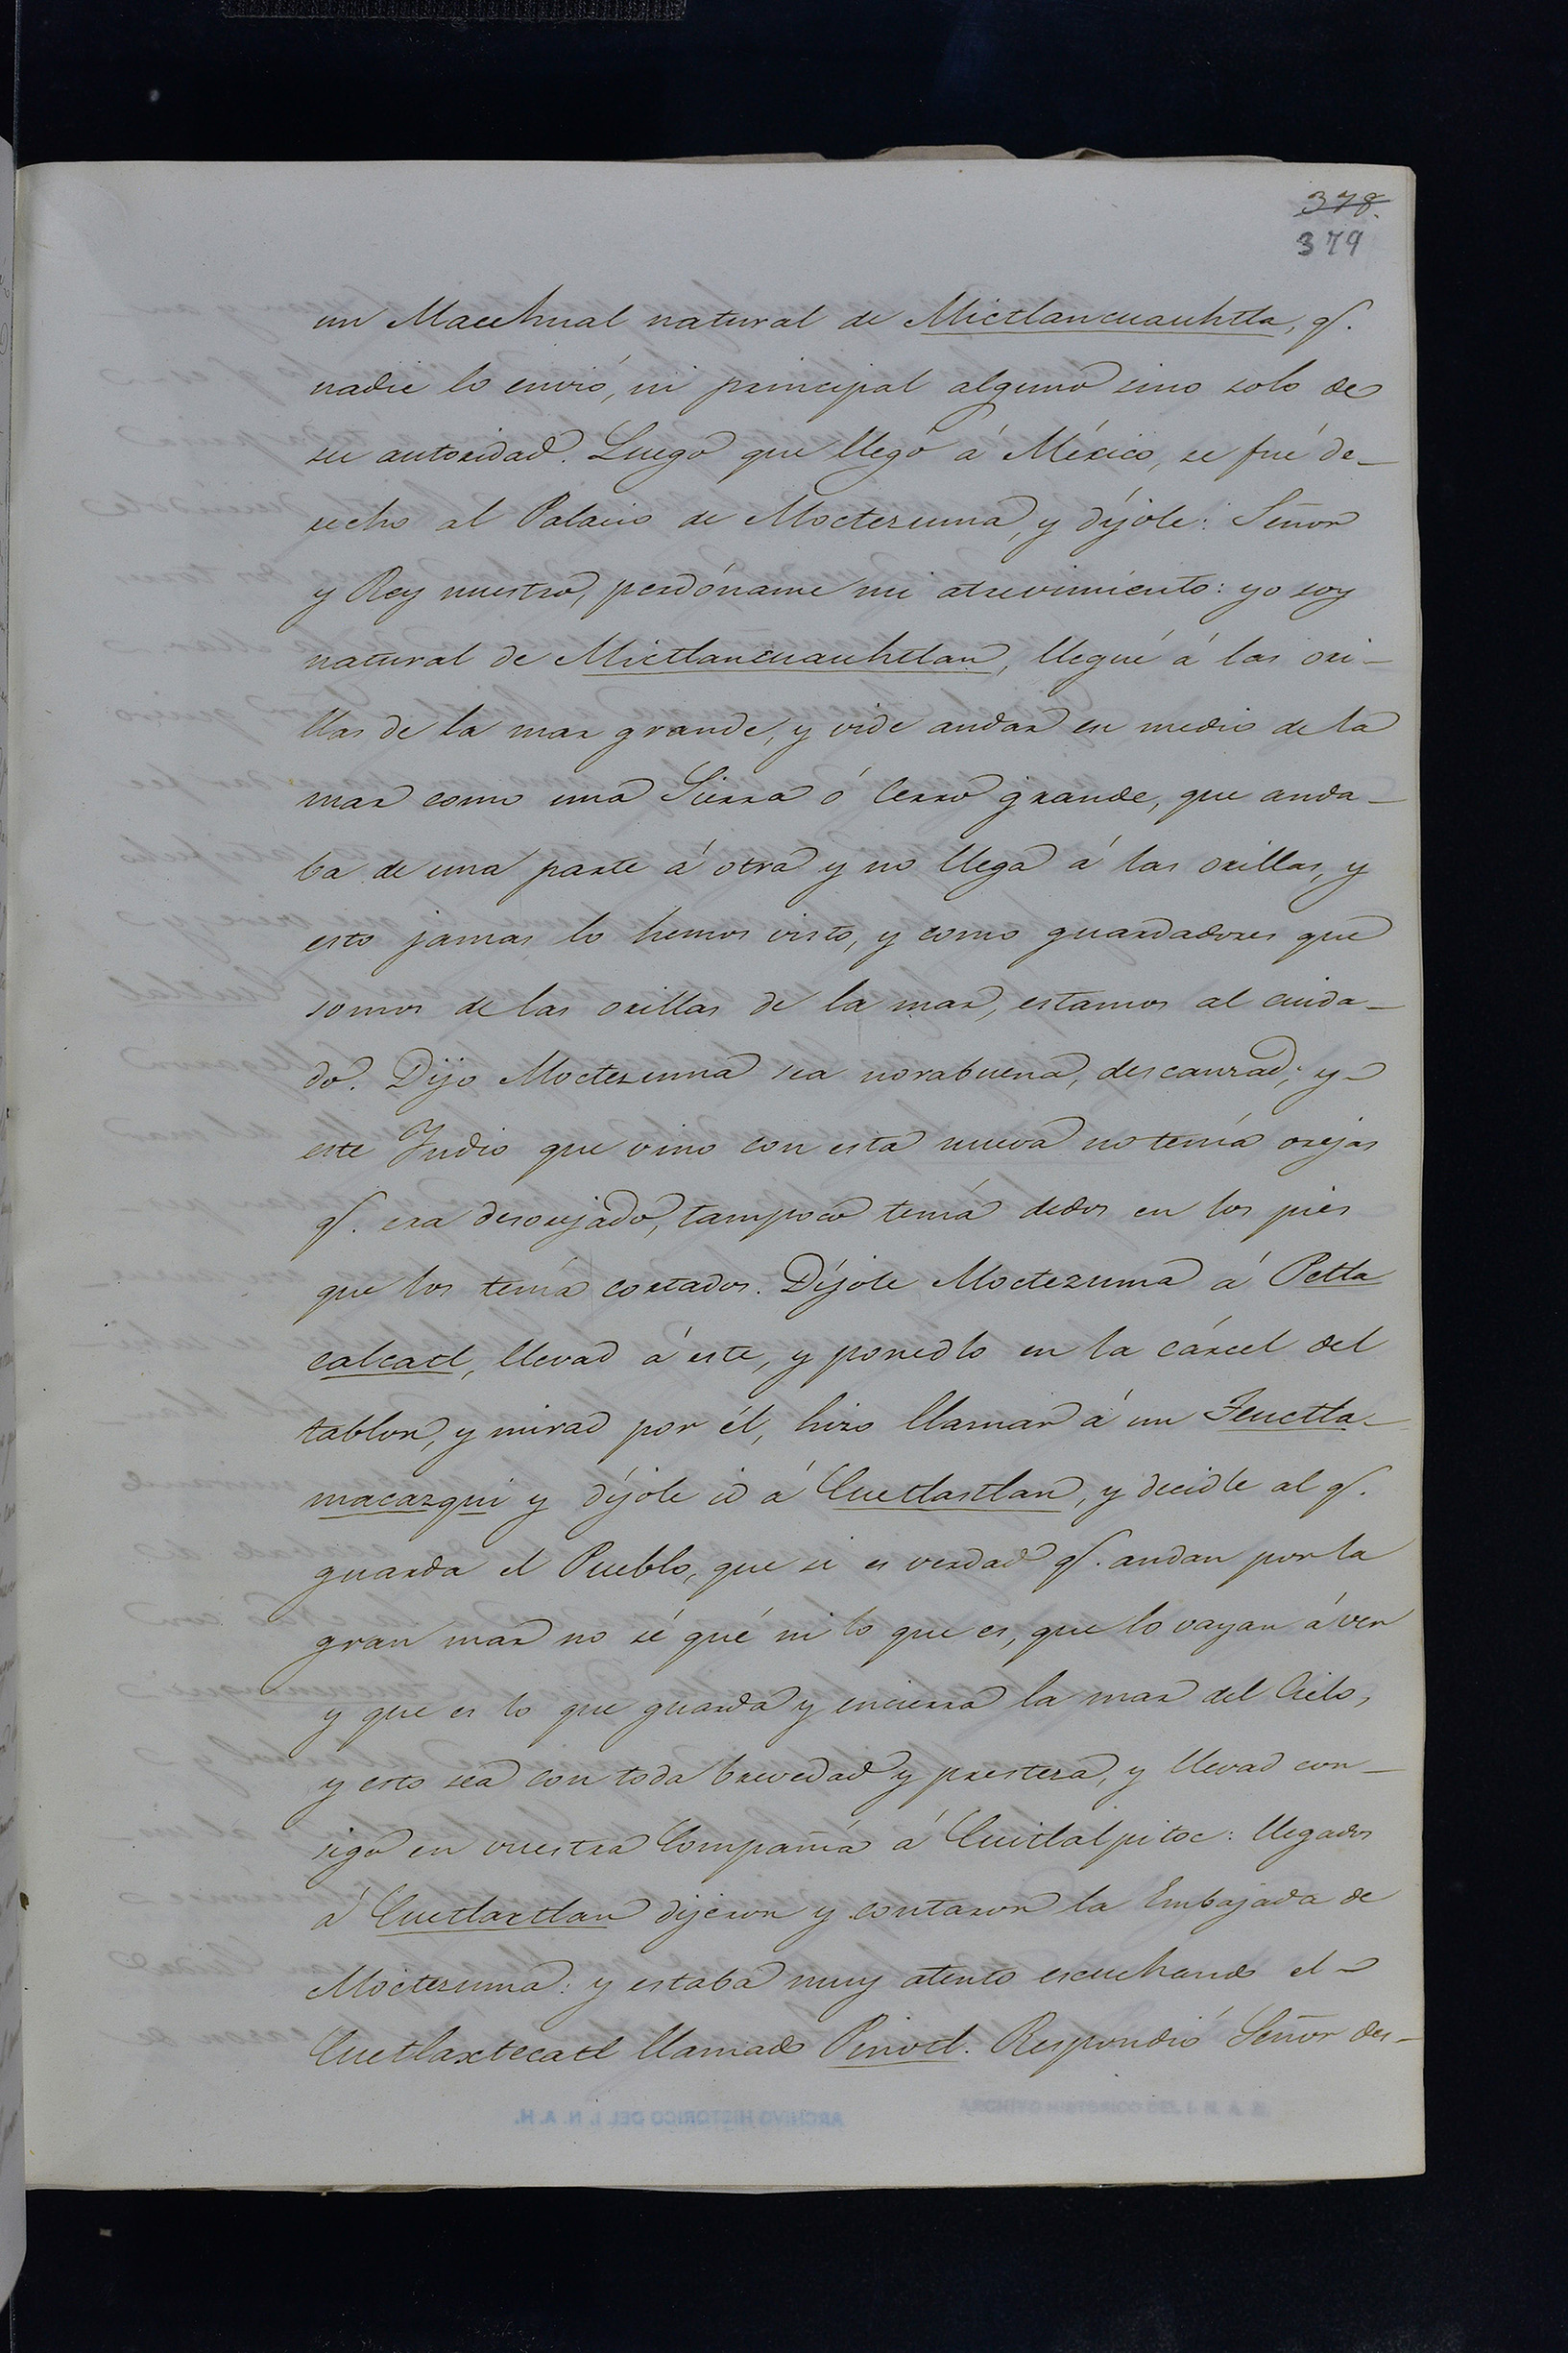 378.
379
un Macehual natural de Mictlancuauhtla, q.
nadie lo envió, ni principal alguno sino solo de
su autoridad. Luego que llegó á México, se fué de-
recho al Palacio de Moctezuma, y díjole: Señor
y Rey nuestro, perdóname mi atrevimiento: yo soy
natural de Mictlancuauhtlan, llegué á las ori-
llas de la mar grande, y vide andar en medio de la
mar como una Sierra ó Cerro grande, que anda-
ba de una parte á otra y no llega á las orillas, y
esto jamas lo hemos visto, y como guardadores que
somos de las orillas de la mar, estamos al cuida-
do. Dijo Moctezuma sea norabuena, descansad; y
este Indio que vino con esta nueva no tenía orejas
q. era desorejado, tampoco tenía dedos en los pies
que los tenía cortados. Díjole Moctezuma á Petla
calcatl, llevad á este, y ponedlo en la cárcel del
tablon, y mirad por él, hizo llamar á un Teuctla-
macazqui y díjole id á Cuetlastlan, y decidle al q.
guarda el Pueblo, que si es verdad q. andan por la
gran mar no sé qué ni lo que es, que lo vayan á ver
y que es lo que guarda y encierra la mar del Cielo,
y esto sea con toda brevedad y presteza, y llevad con-
sigo en vuestra Compañía á Cuitlalpitoc: llegados
á Cuetlaxtlan dijeron y contaron la Embajada de
Moctezuma: y estaba muy atento escuchando el
Cuetlaxtecatl llamado Pinotl. Respondió Señor des-
ARCHIVO HISTORICO DEL I. N. A. H.
ARCHIVO HISTORICO DEL I. N. A. H.